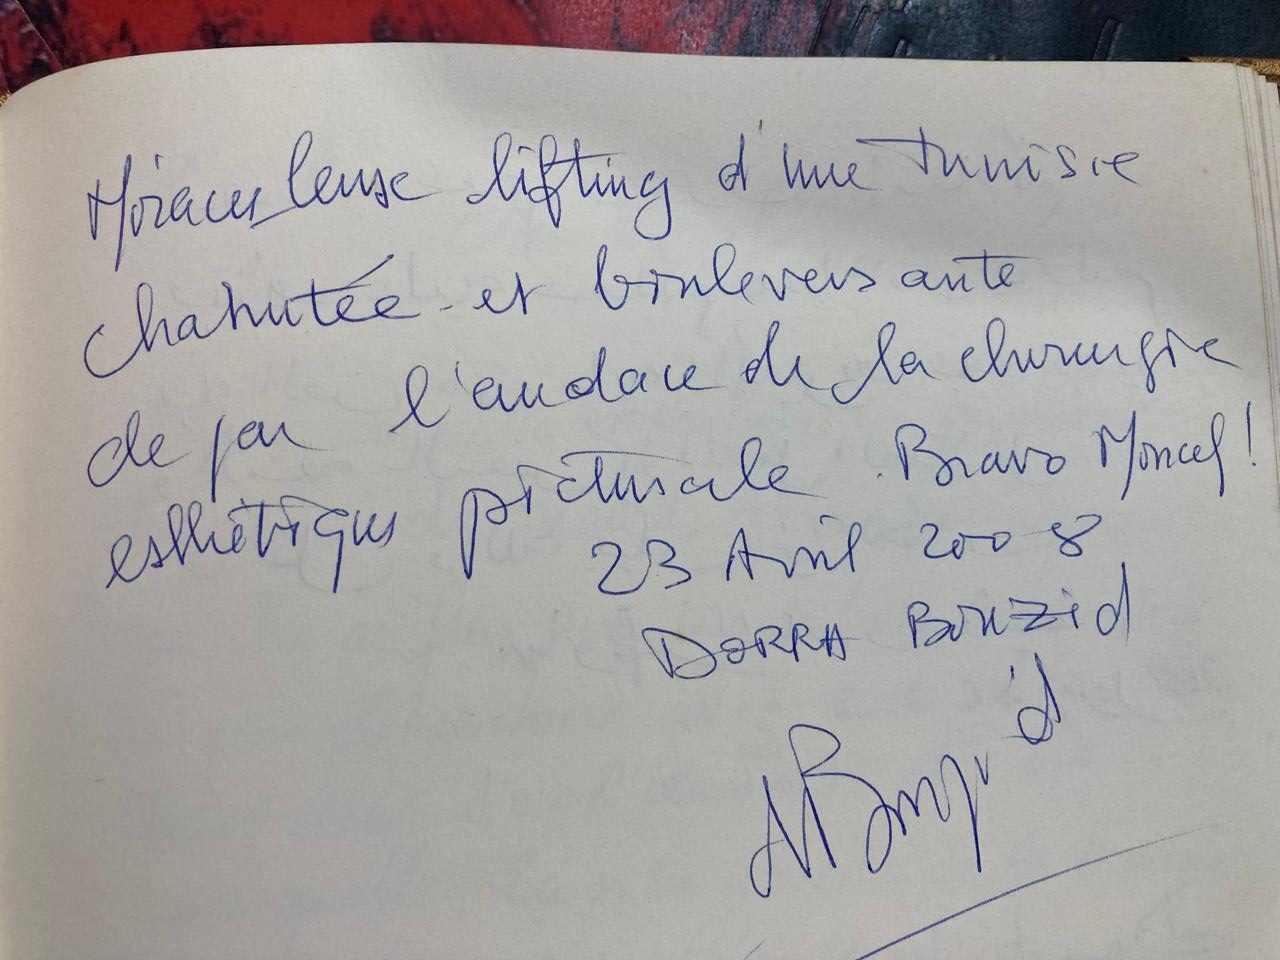 Miraculeuse lifting d'une Tunisie
chahutée et bouleversante
de par l'audace de la chirurgie
esthétique picturale. Bravo Moncef!
23 Avril 2008
DORRA Bouzid